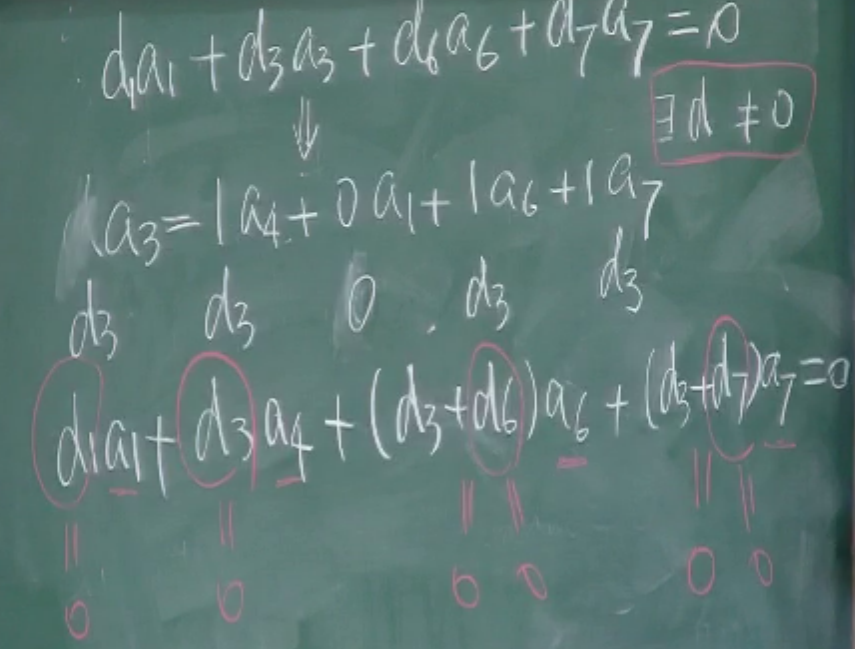 d₁a₁ + d₃a₃ + d₆a₆ + d₇a₇ = 0
∃ d ≠ 0
⇓
a₃ = 1a₄ + 0a₁ + 1a₆ + 1a₇
d₃ d₃ 0 d₃ d₃
d₁a₁ + d₃a₄ + (d₃+d₆)a₆ + (d₃+d₇)a₇ = 0
|| || || || || ||
0 0 0 0 0 0